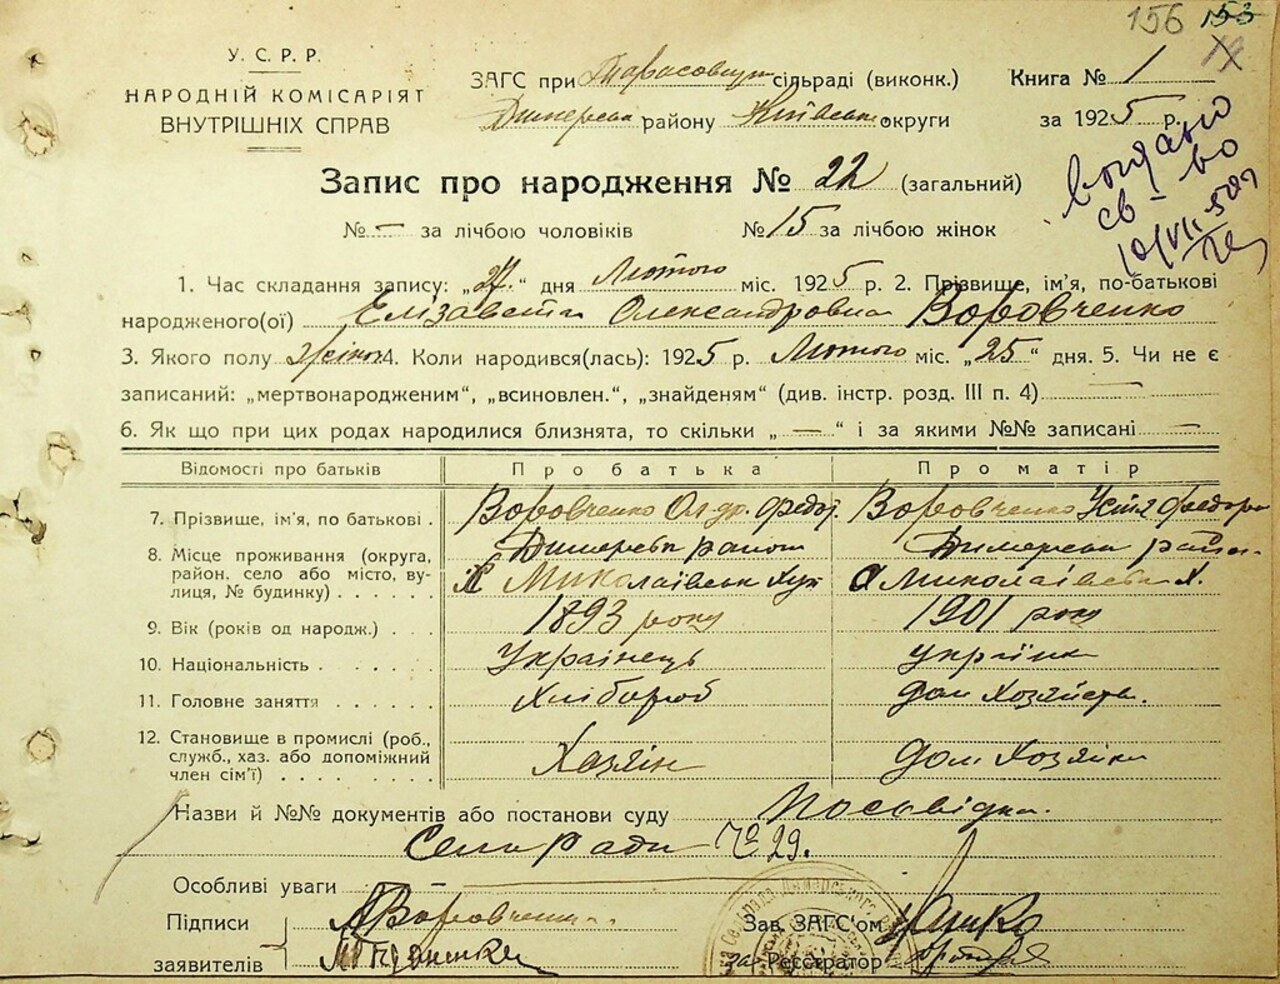 156 153
У. С. Р. Р.
НАРОДНІЙ КОМІСАРІЯТ
ВНУТРІШНІХ СПРАВ
ЗАГС при Тарасовщ. сільраді (виконк.)
Димерськ району Київськ округи
Книга № 1
за 1925 р.
Запис про народження № 22 (загальний)
видано
св-во
10/VII
№ — за лічбою чоловіків № 15 за лічбою жінок
1. Час складання запису: „27“ дня Лютого міс. 1925 р. 2. Прізвище, ім'я, по-батькові
народженого(ої) Елізавета Олександровна Воровченко
3. Якого полу жіноч 4. Коли народився(лась): 1925 р. Лютого міс. „25“ дня. 5. Чи не є
записаний: „мертвонародженим“, „всиновлен.“, „знайденям“ (див. інстр. розд. III п. 4) —
6. Як що при цих родах народилися близнята, то скільки „—“ і за якими №№ записані —
Відомості про батьків Про батька Про матір
7. Прізвище, ім'я, по батькові . Воровченко Ол-др. Федор. Воровченко Устя Федоро
8. Місце проживання (округа, район, село або місто, вулиця, № будинку) . . . . . . Димерськ район Димерськ район
Миколаівськ Хут Миколаівськ Х.
9. Вік (років од народж.) . . . 1893 року 1901 року
10. Національність . . . . . . Українець українка
11. Головне заняття . . . . . . Хлібороб дом Хозяйств.
12. Становище в промислі (роб., служб., хаз. або допоміжний член сім'ї) . . . . . Хазяін дом Хозяйка
Назви й №№ документів або постанови суду Посвідка
Сельради № 29.
Особливі уваги —
Підписи заявителів А Воровченко
Зав. ЗАГС'ом
за Реєстратор